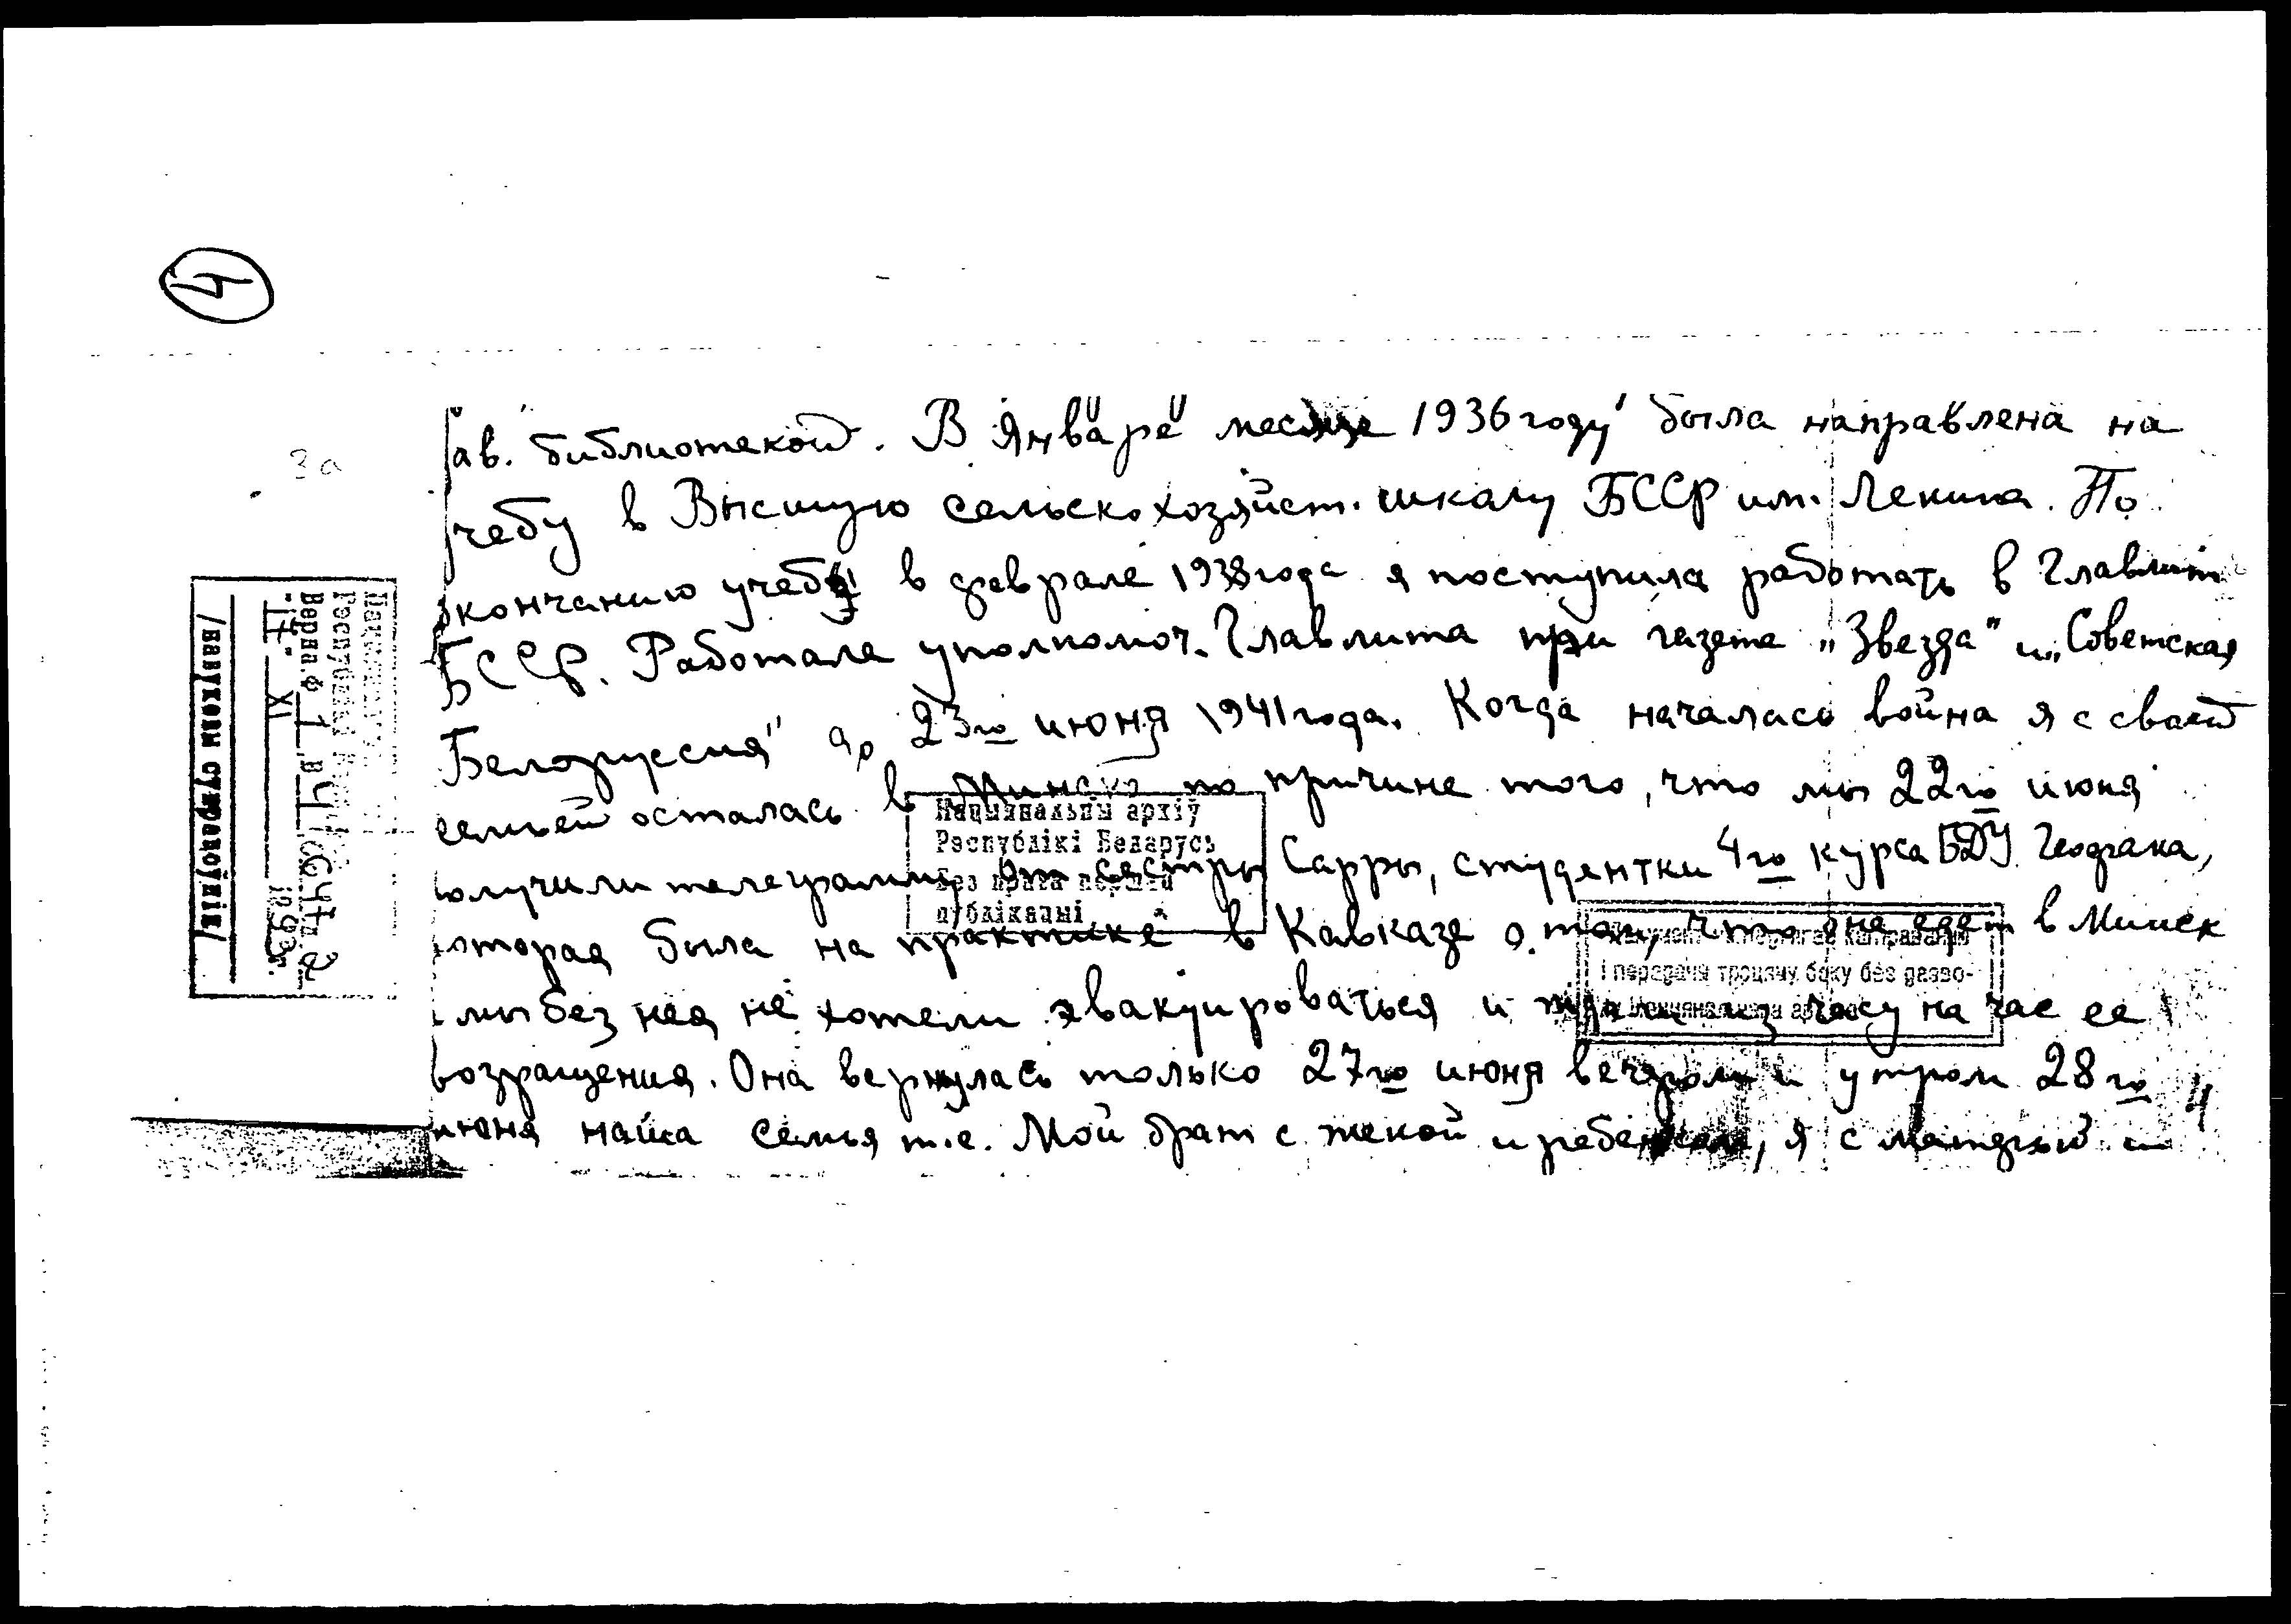 4
3а
ав. библиотекой. В Январе месяце 1936 году была направлена на
учебу в Высшую сельскохозяйст. школу БССР им. Ленина. По
окончанию учебы в феврале 1938 года я поступила работать в Главлит
БССР. Работала уполномоч. Главлита при газете „Звезда" и „Советская
Белоруссия" до 23го июня 1941 года. Когда началась война я с своей
семьей осталась в Минске по причине того, что мы 22го июня
получили телеграмму от сестры Сарры, студентки 4го курса БДУ Геофака,
которая была на практике в Кавказе о том, что она едет в Минск
мы без нея не хотели эвакуироваться и ждали из часу на час ее
возращения. Она вернулась только 27го июня вечером и утром 28го
июня наша семья т.е. Мой брат с женой и ребенком, я с матерью и
4
Нацыянальны архіў
Рэспублікі Беларусь
Без права першай
публікацыі
і перадачы трэцяму боку без дазво-
Рэспублікі
Верна. Ф 1 в
XI 1993г.
/навуковы супрацоўнік/